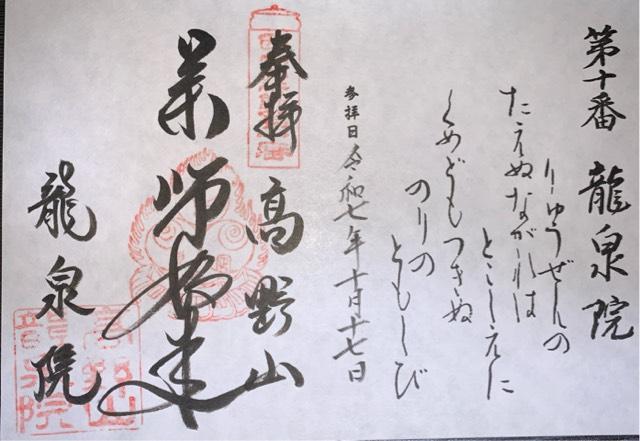 第十番 龍泉院
りゅうぜんの
たえぬながれは
とこしえに
くめどもつきぬ
のりの
ともしび
参拝日 令和七年十月十七日
奉拝 高野山
薬師如来
龍泉院